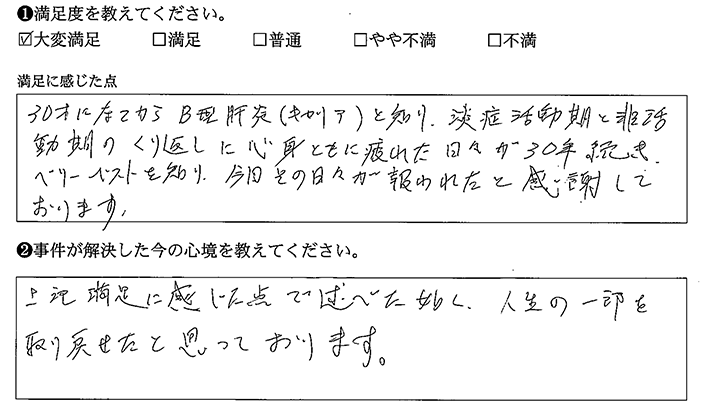 ❶満足度を教えてください。
☑大変満足 □満足 □普通 □やや不満 □不満
満足に感じた点
30才になってからB型肝炎(キャリア)と知り、炎症活動期と非活
動期のくり返しに心身ともに疲れた日々が30年続き、
ベリーベストを知り、今回その日々が報われたと感謝して
おります。
❷事件が解決した今の心境を教えてください。
上記満足に感じた点で述べた如く、人生の一部を
取り戻せたと思っております。